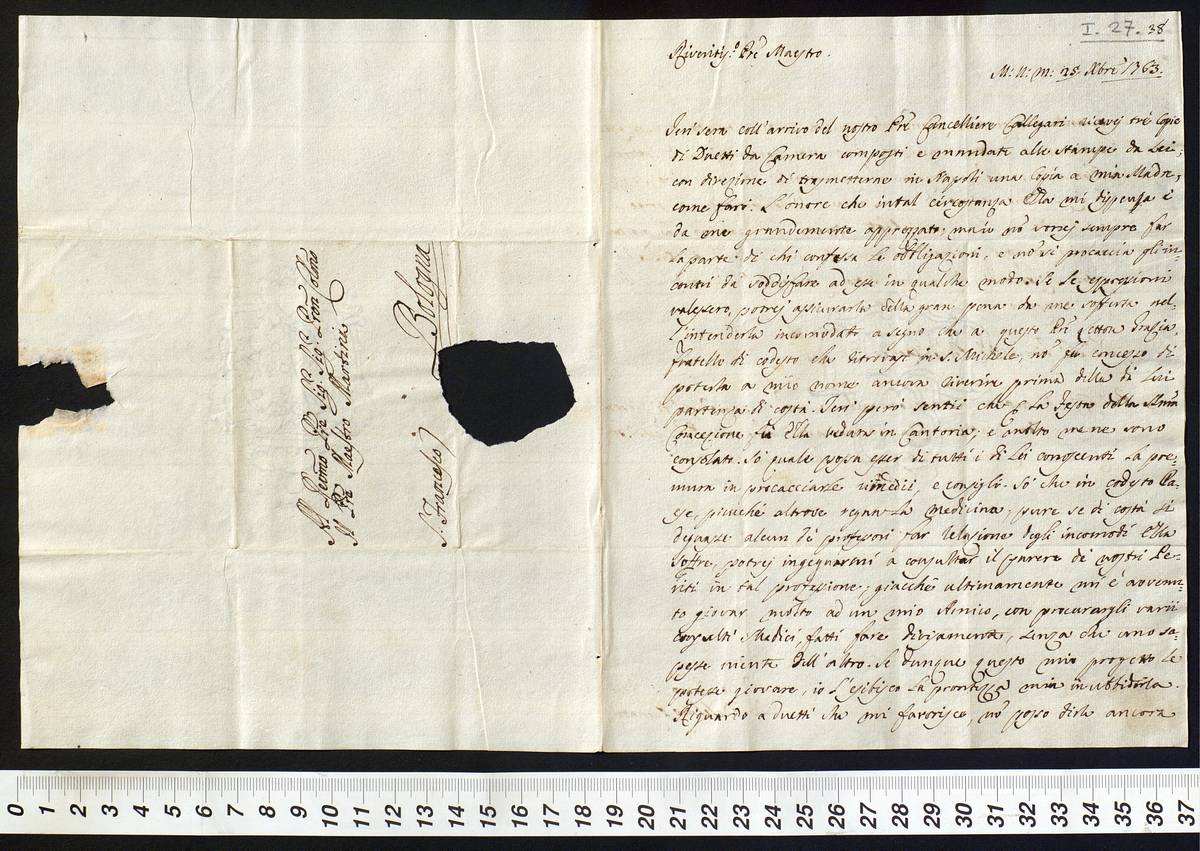 Al Revmo Pre Sig. Sig. Pron Colmo
Il Pre Maestro Martini
Bologna
S. Francesco
I. 27. 38
Riveritis.o Pre Maestro.
28. Xbre 1763.
Ieri sera coll'arrivo del nostro Pre Cancelliere Callegari ricevej trè Copie
di Duetti da Camera composti e mandati alle stampe da Lei,
con direzione di trasmetterne in Napoli una Copia a mia Madre,
come farò. L'onore che in tal circostanza Ella mi dispensa è
da me grandemente apprezzato; ma io nò vorrej sempre far
la parte di chi confessa le obbligazioni, e nò si procaccia gl'in-
contri di soddisfare ad esse in qualche modo. Se le espressioni
valessero, potrej assicurarla della gran pena da me sofferta nel-
l'intenderla incomodata a segno che a questo Pre Lettor
fratello di codesto che ritrovasi in S. Michele, nò fù concesso di
poterla a mio nome ancora riverire prima della di lui
partenza di costà. Ieri però sentii che p la Festa della
Concezione fù Ella veduta in Cantoria, e molto me ne sono
consolato. Sò quale possa esser di tutti i di Lei conoscenti la pre-
mura in procacciarle rimedii, e consigli. Sò che in codesto Pa-
ese, piucchè altrove regna la Medicina; pure se di costà si
degnasse alcun de' professori far relazione degli incomodi Ella
soffre, potrej ingegnarmi a consultar il parere de' nostri Pe-
riti in tal professione; giacchè ultimamente mi è avvenu-
to giovar molto ad un mio Amico, con procurargli varii
consulti Medici, fatti fare divisamente, senza che uno sa-
pesse niente dell'altro. Se dunque questo mio progetto le
potesse giovare, io l'esibisco la prontezza mia in ubbidirla.
Riguardo a duetti che mi favorisce, nò posso dirle ancora
0 1 2 3 4 5 6 7 8 9 10 11 12 13 14 15 16 17 18 19 20 21 22 23 24 25 26 27 28 29 30 31 32 33 34 35 36 37